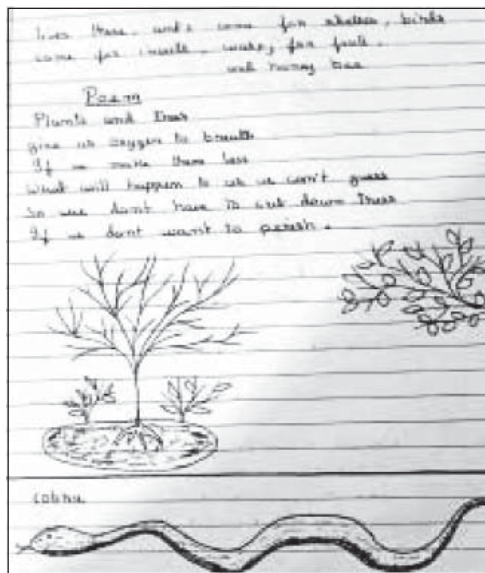 lives there, ants come for shelter, birds
come for insects, for fruit,
and honey bee
Poem
Plants and trees
give us oxygen to breath
If we make them less
What will happen to us we can't guess
So we dont have to cut down trees
If we dont want to perish.
cobra